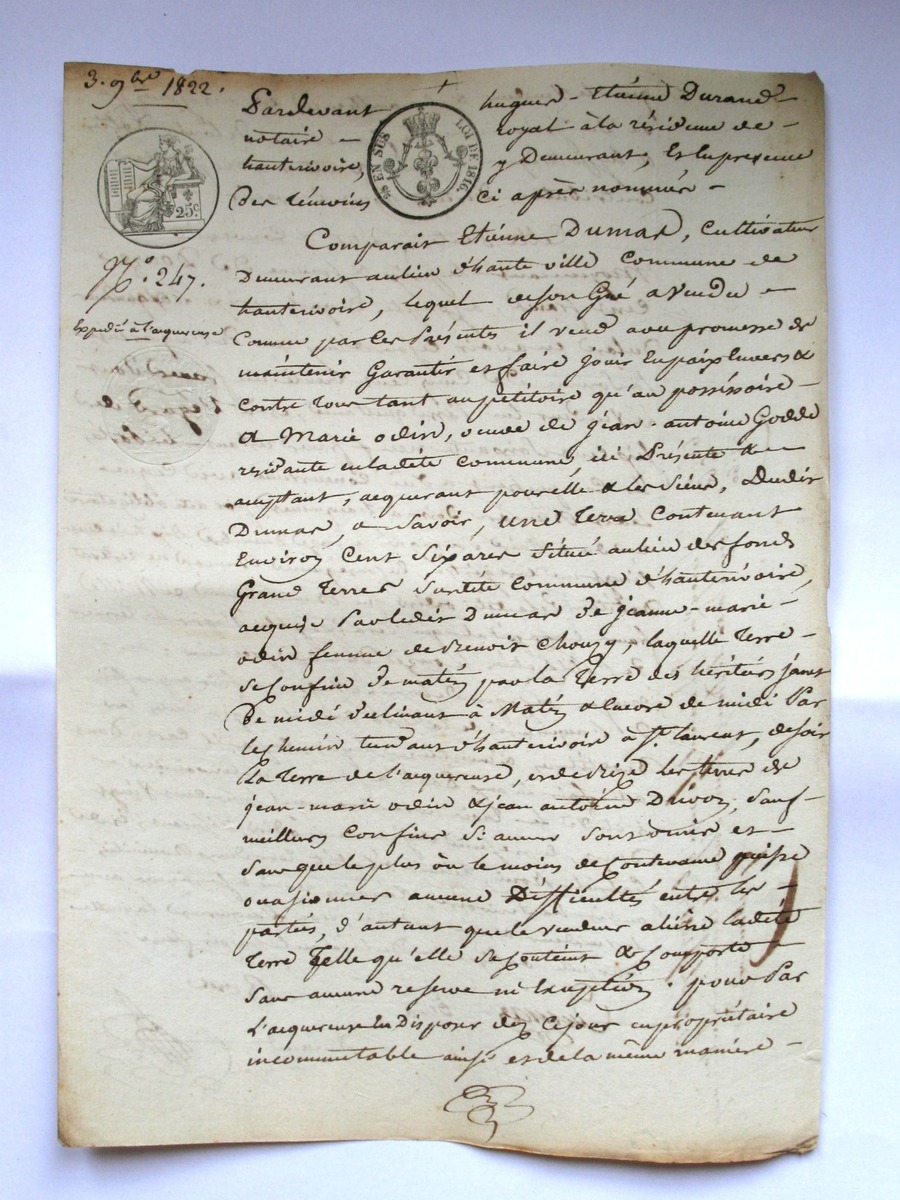 3. 9bre 1822.
Pardevant hugues - Etienne Durand
notaire - royal à la résidence de -
hauterivoire, y Demeurant, Et En presence
Des témoins ci après nommés -
25 EN SUS LOI DE 1816.
25c
N.o 247.
Expedié à l'acquereuse
Comparait Etienne Dumas, Cultivateur
Demeurant au lieu d'haute ville Commune de
hauterivoire, lequel de son Gré a Vendu -
Comme par les Présentes il vend avec promesse de
maintenir Garantir et faire jouir En paix Envers &
Contre Tous tant au pétitoire qu'au possessoire -
A Marie odin, veuve de jean - antoine Godde
residante en ladite commune, ici Présente &
acceptant, acquerant pour elle & les Siens, Dudit
Dumas, a Savoir, une Terre Contenant
Environ Cent Six ares Située au lieu des fonds
Grand Terres Surdite Commune d'hauterivoire,
acquise Par ledit Dumas De jeanne - marie -
odin femme de Benoit Chouzy, laquelle Terre -
Se Confine De matin par la Terre des héritiers
De midi Déclinant à Matin & Encore de midi Par
le chemin tendant d'hauterivoire à St. laurent, de soir
La Terre de l'acquereuse, et de Bize les terres de
jean - marie odin & jean antoine, Sauf -
meilleurs Confins Si aucun Sont omis et -
Sans que le plus où le moins de Contenance puisse
occasionner aucune Difficultés entre les -
parties, d'autant que le vendeur aliène ladite
Terre Telle qu'elle Se Contient & Comporte -
Sans aucune reserve ni Exception. pour Par
L'acquereuse En Disposer dez Ce jour en propriétaire
incommutable ainsi et de la même maniere -